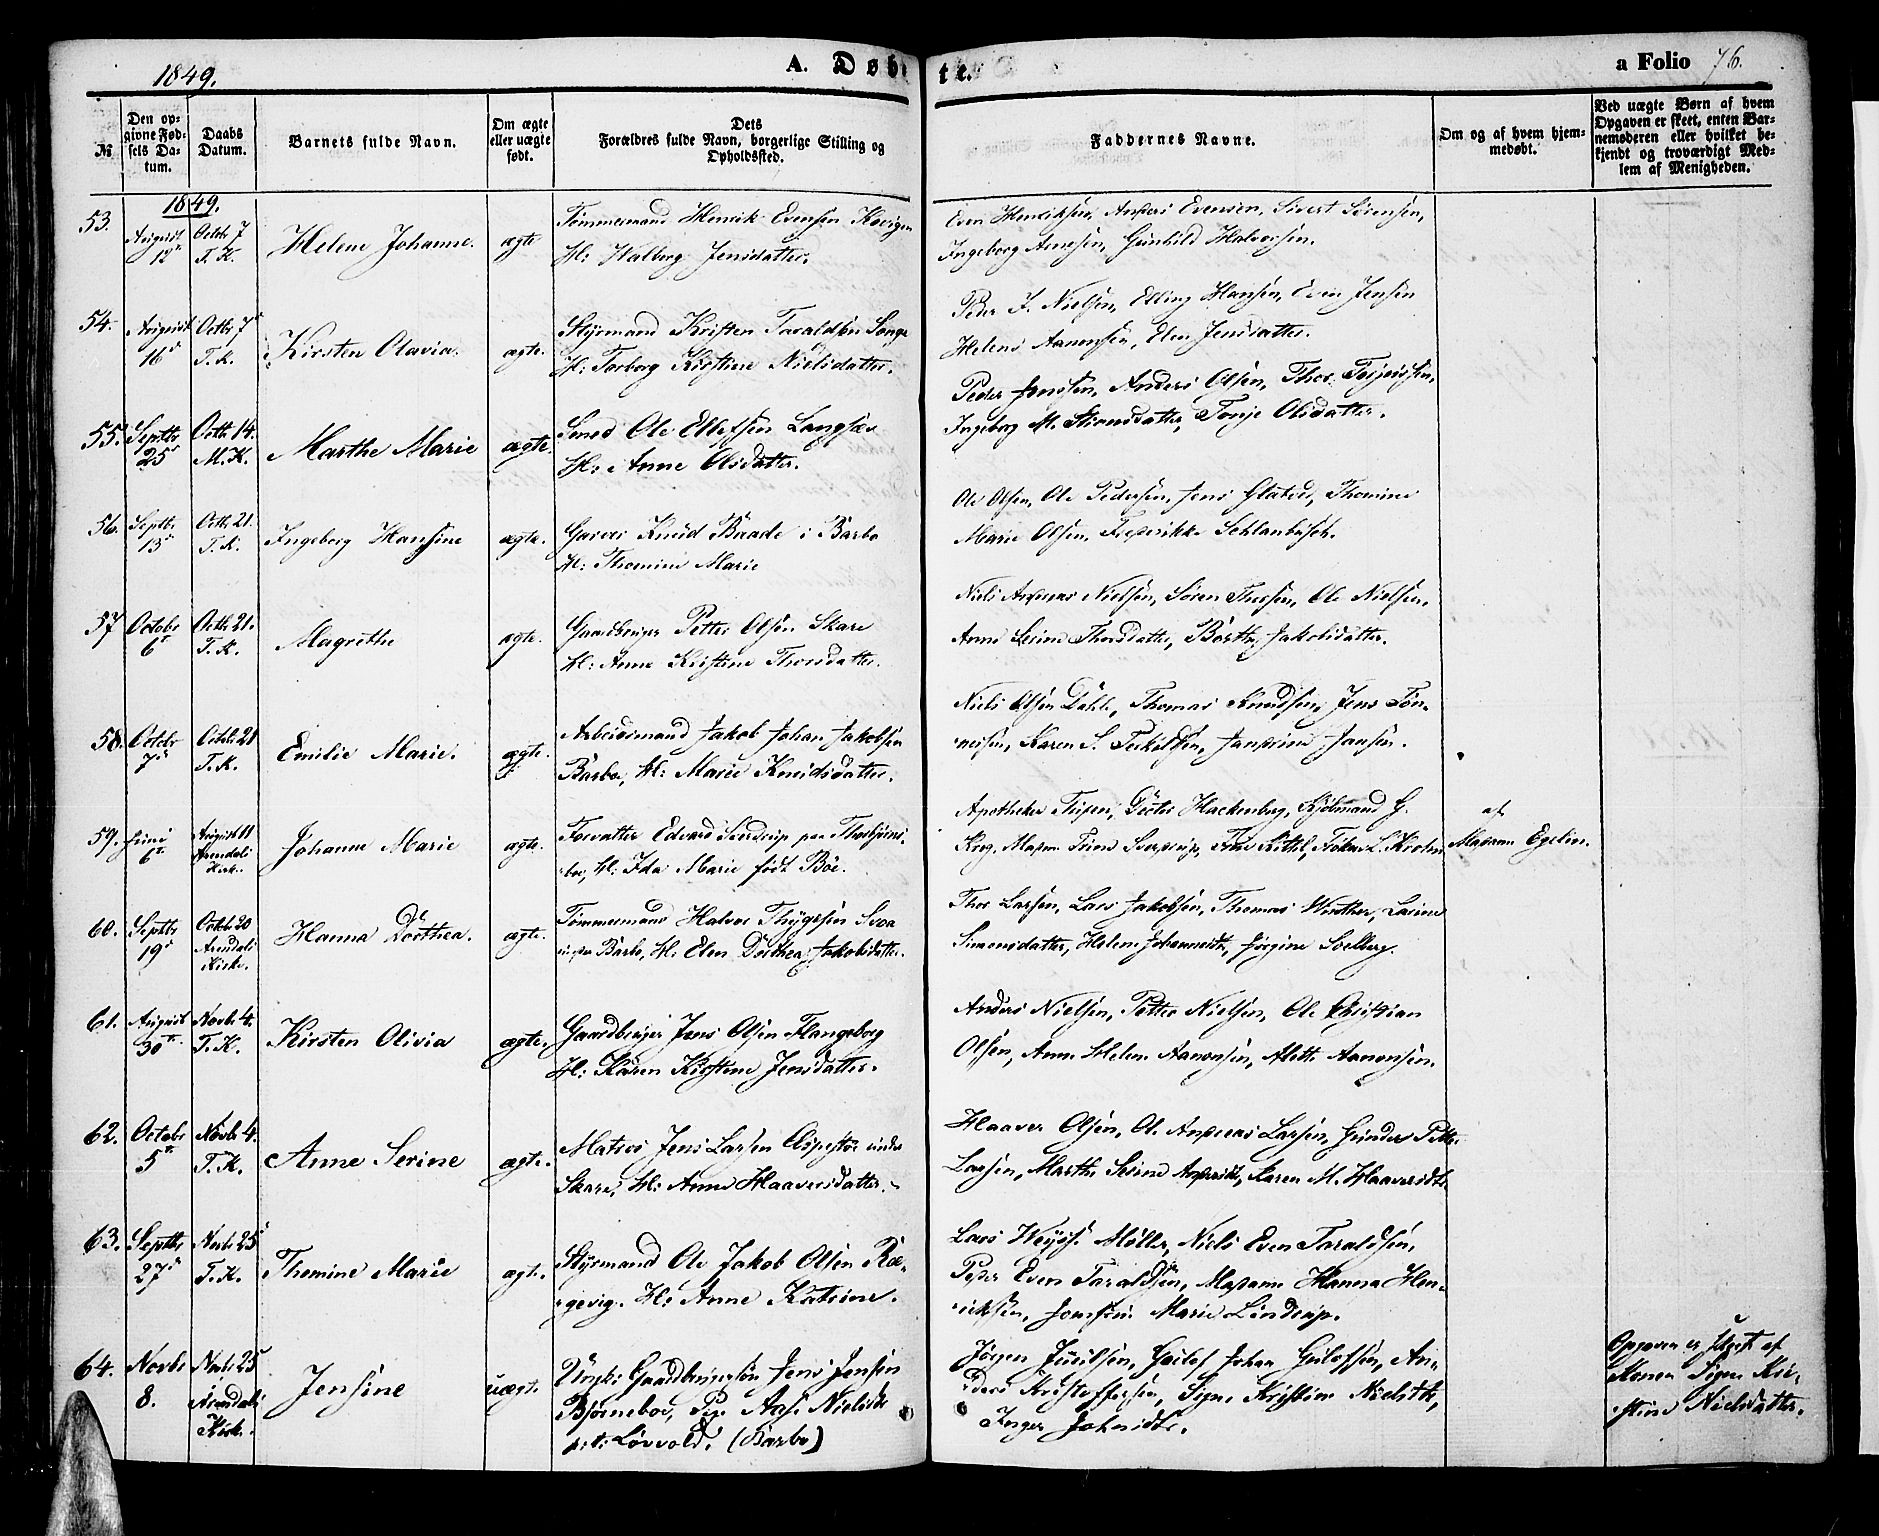 1849.
A. Døbte.
a Folio 76.
№
Den opgivne Fødsels Datum.
Daabs Datum.
Barnets fulde Navn.
Om ægte eller uægte født.
Dets Forældres fulde Navn, borgerlige Stilling og Opholdssted.
Faddernes Navne.
Om og af hvem hjemmedøbt.
Ved uægte Børn af hvem Opgaven er skeet, enten Barnemoderen eller hvilket bekjendt og troværdigt Medlem af Menigheden.
1849.
53. August 12 Octbr 7 T. K. Helene Johanne. ægte
Tømmermand Henrik Evensen
H: Halberg Jensdatter.
Even Henriksen, Anders Evensen, Sivert Sørensen,
Ingeborg Arnesen, Gunhild Halvorsen.
54. August 16 Octbr 7 T. K. Kirsten Olavia. ægte.
Styrmand Kristen Taraldsen Songe
H: Torborg Kirstine Nielsdatter.
Peder J. Nielsen, Elling Hansen, Even Jensen
Helene Aanonsen, Elen Jensdatter.
55. Septbr 25 Octbr 14. M. K. Marthe Marie ægte.
Smed Ole Ellefsen Langsæe
H: Anne Olsdatter.
Peder Jensen, Anders Olsen, Thor Terjersen,
Ingeborg M. Simonsdatter, Tonje Olsdatter.
56. Septbr. 13 Octbr 21. T. K. Ingeborg Hansine ægte.
Garver Knud Baade i Barbo
H: Thomine Marie
Ole Olsen, Ole Pedersen, Jens Glatved, Thomine
Marie Olsen, Frederikke Schlanbusch.
57 Octobr 6 Octbr 21. T. K. Magrethe ægte.
Gaardbruger Petter Olsen Skare
H: Anne Kirstine Thorsdatter.
Niels Andreas Nielsen, Søren Thorsen, Ole Nielsen.
Anne Serine Thorsdatter, Berthe Jakobsdatter.
58. Octobr 7 Octobr 21 T. K. Emilie Marie. ægte.
Arbeidsmand Jakob Johan Jakobsen
Barbo, H: Marie Knudsdatter.
Niels Olsen Dahle, Thomas Knudsen, Jens Tøn-
nesen, Karen S. Terkildsen, Jensine Jansen.
59. Juni 6 August 11 Arendals Kirke. Johanne Marie ægte.
Forvalter Edvard Sverdrup paa Thorbjørns-
boe, H: Ida Marie født Böe.
Apotheker Tusen, Doctor Hackenberg, Kjøbmand G.
Krog, Madam Trine Sverdrup,
af
Madame Egelin.
60. Septbr 19 Octobr 20 Arendals Kirke. Hanna Dorthea. ægte.
Tømmermand Halvor Thygesen Svoa
under Barbo, H: Elen Dorthea Jakobsdatter.
Thor Larsen, Lars Jakobsen, Thomas Winther, Larine
Simonsdatter, Helene Johannesdtr, Jørgine Solberg.
61. August 30 Novbr 4. T. K. Kirsten Olivia ægte.
Gaardbruger Jens Olsen Flangeborg
H: Karen Kirstine Jensdatter.
Anders Nielsen, Petter Nielsen, Ole Christian
Olsen, Anne Helene Aanonsen, Alette Aanonsen.
62. Octobr 5 Novbr 4. T. K. Anne Serine ægte.
Matros Jens Larsen Aspestøe under
Skare, H: Anne Haaversdatter.
Haaver Olsen, Ole Andreas Larsen, Gunder Petter
Larsen, Marthe Serine Andersdtr, Karen M. Haaversdtr
63. Septbr 27 Novbr 25 T. K. Thomine Marie ægte.
Styrmand Ole Jakob Olsen Ræ-
gevig. H: Anne Katrine.
Lars Weyse Møller, Niels Even Taraldsen,
Peder Even Taraldsen, Madame Hanna Hen-
riksen, Jomfru Marie Lindrup.
64. Novbr 8. Novbr 25 i Arendals Kirke. Jensine uægte.
Ungk: Gaardbrugersøn Jens Jensen
Bjørneboe, Pige Aase Nielsdtr
p: t: Løvvold. (Barbo)
Jørgen Juulsen, Geilof Johan Geilofsen, An-
ders Kristoffersen, Signe Kristine Nielsdtr,
Inger Johnsdtr.
Opgaven er skeet af
Konen Signe Kri-
stine Nielsdatter.